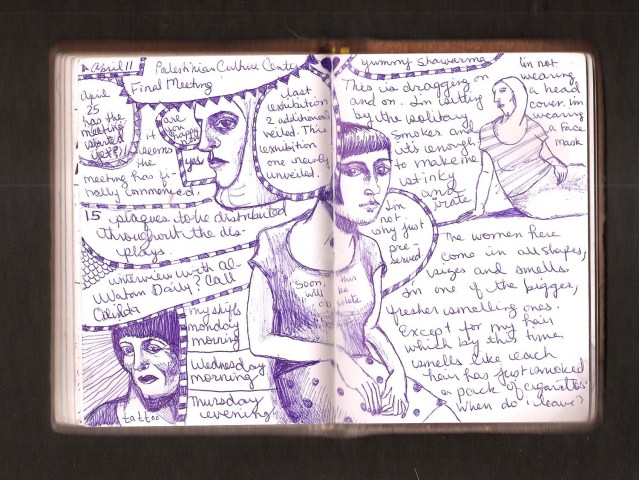 April 11
Palestinian Culture Center
Final Meeting
April
25
has the
meeting
started
yet?
it
seems
the
meeting has fi-
nally commenced.
are
you
happy
yes
last
exhibition
2 additional
veiled. This
exhibition
one newly
unveiled.
15 plaques to be distributed
throughout the dis-
plays.
interview with Al-
Watan Daily? Call
my shifts
monday
morning
Wednesday
morning
Thursday
evening
tattoo
Soon, this
will be
obsolete
yummy shawarma
This is dragging on
and on. I'm sitting
by the solitary
smoker and
it's enough
to make me
stinky
and
irate
I'm not
wearing
a head
cover. I'm
wearing
a face
mask
I'm
not
why just
pre-
served
The women here
come in all shapes,
sizes and smells.
I'm one of the bigger,
fresher smelling ones.
Except for my hair
which by this time
smells like each
hair has just smoked
a pack of cigarettes.
When do i leave?